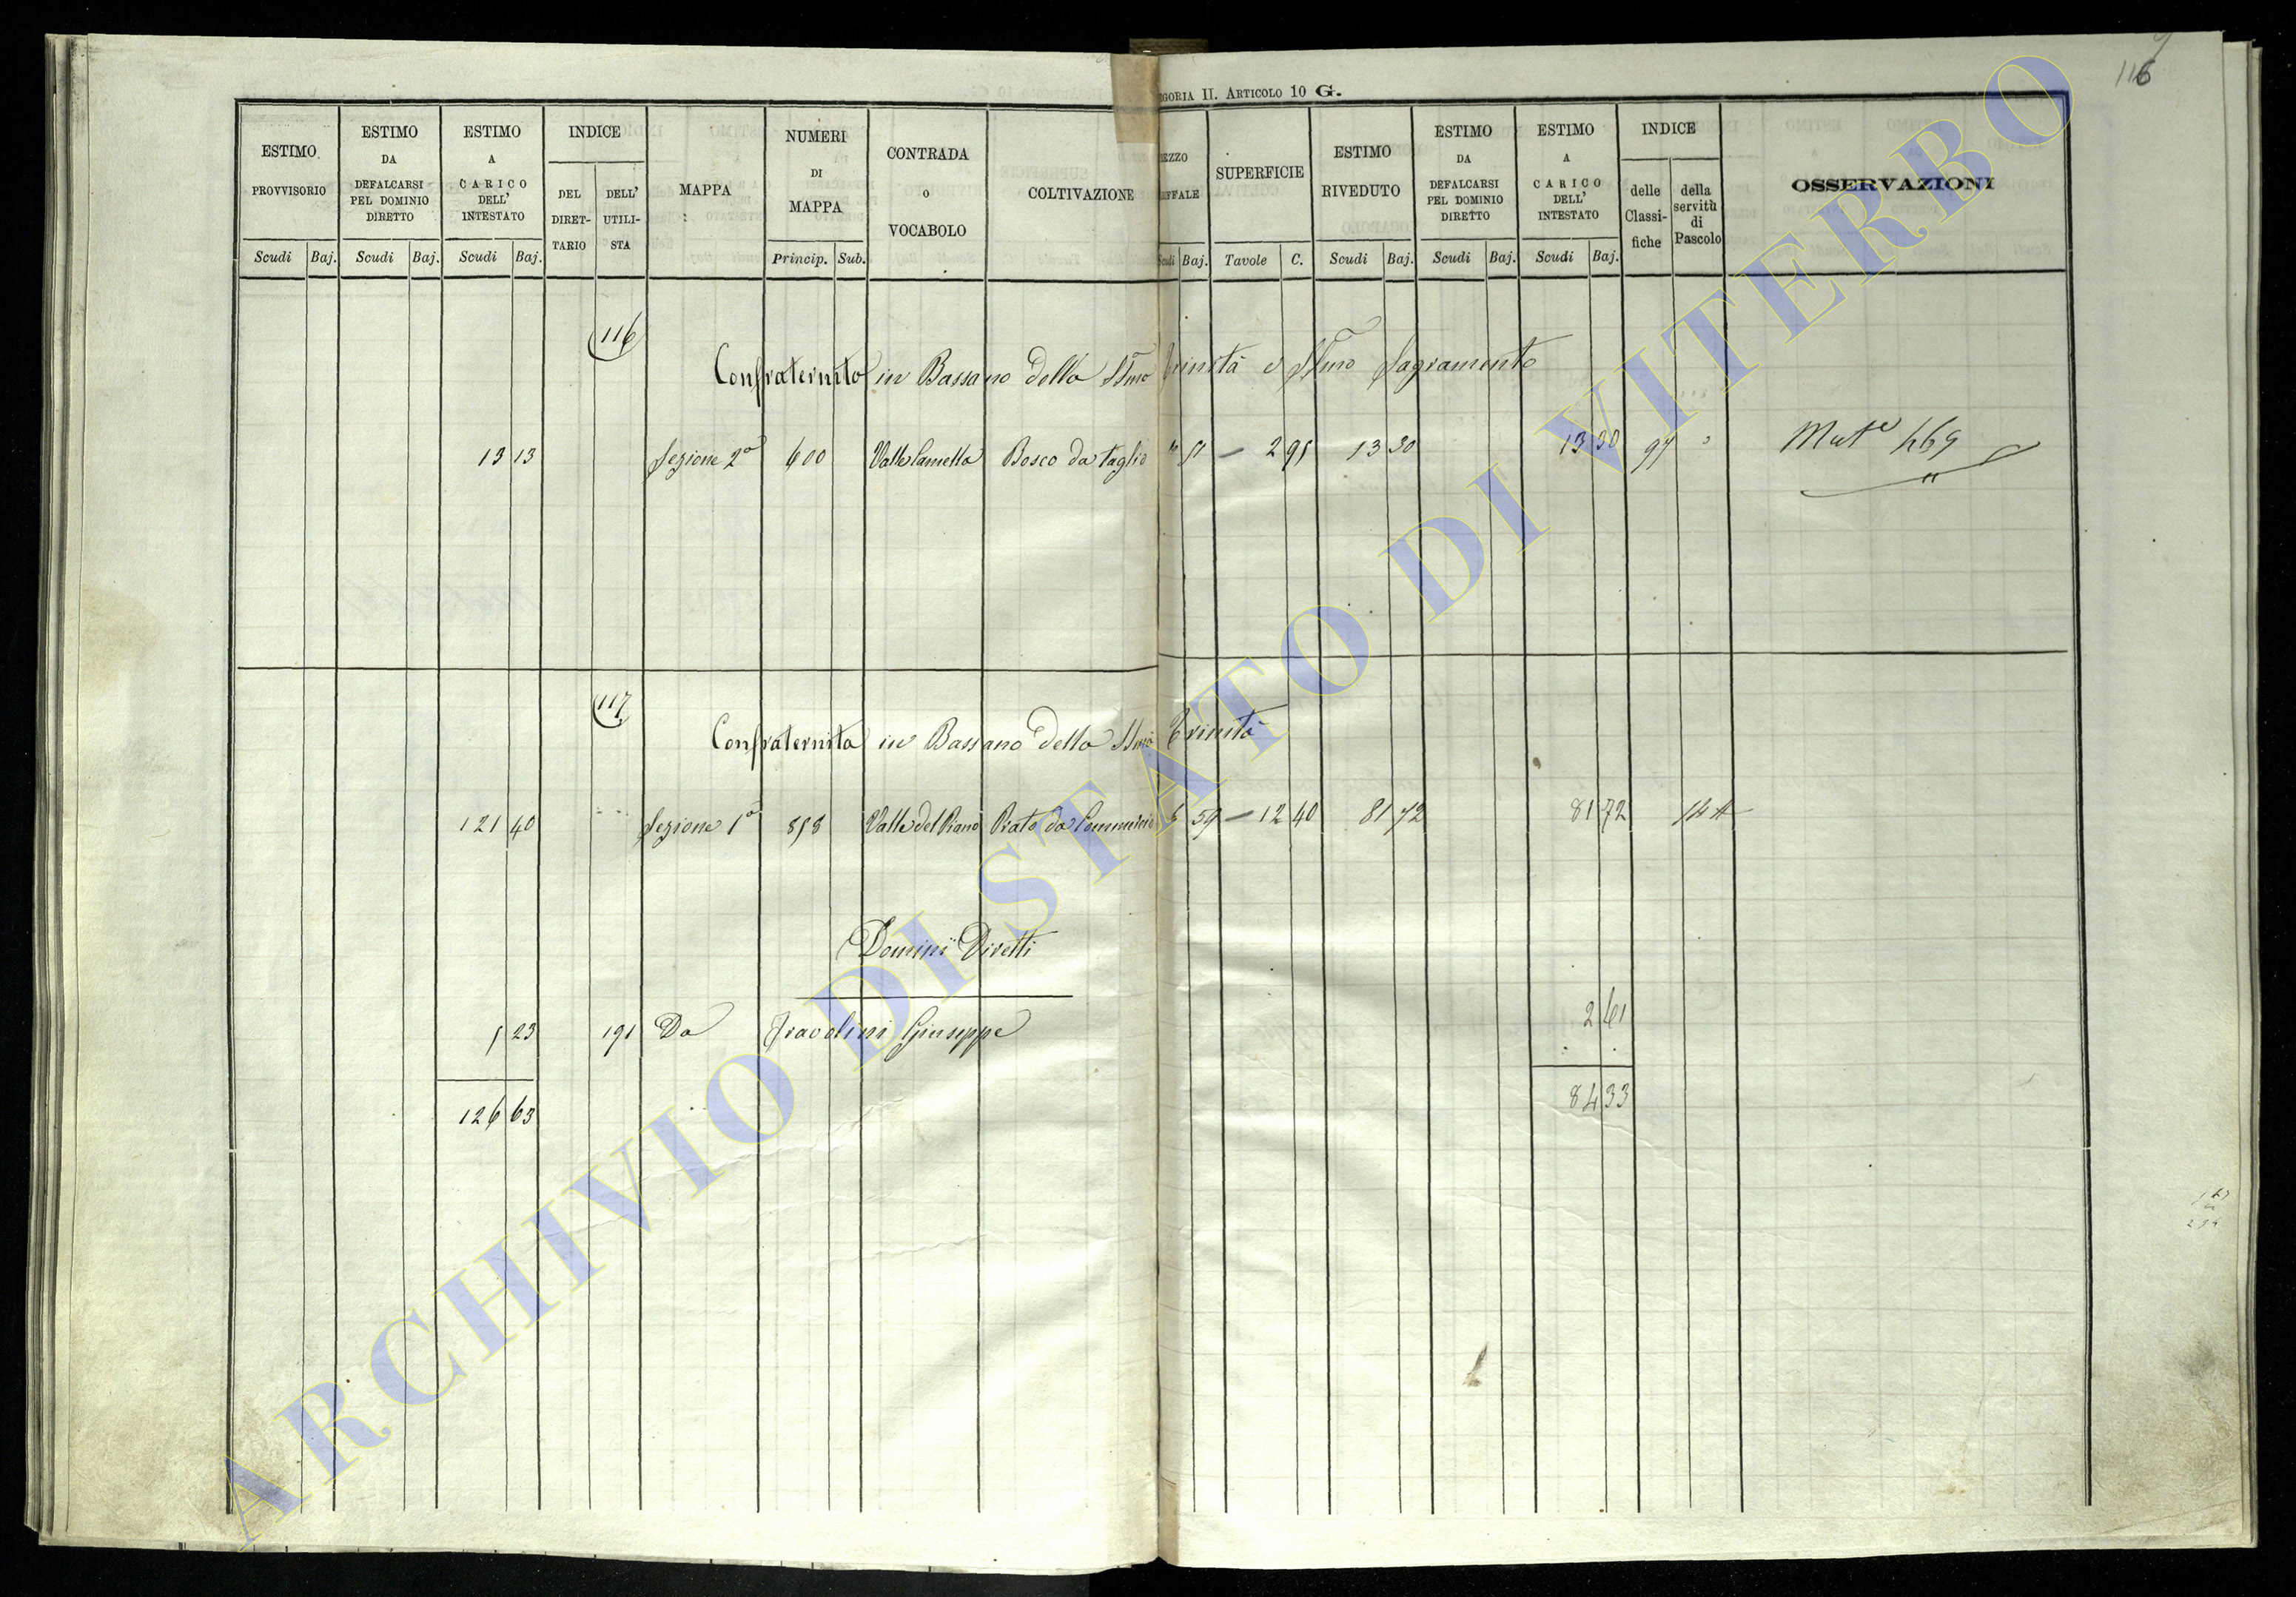 116
EGORIA II. ARTICOLO 10 G.
ESTIMO PROVVISORIO
Scudi Baj.
ESTIMO DA DEFALCARSI PEL DOMINIO DIRETTO
Scudi Baj.
ESTIMO A CARICO DELL' INTESTATO
Scudi Baj.
INDICE
DEL DIRET-TARIO
DELL' UTILI-STA
MAPPA
NUMERI DI MAPPA
Princip. Sub.
CONTRADA O VOCABOLO
COLTIVAZIONE
EZZO
Scudi Baj.
SUPERFICIE
Tavole C.
ESTIMO RIVEDUTO
Scudi Baj.
ESTIMO DA DEFALCARSI PEL DOMINIO DIRETTO
Scudi Baj.
ESTIMO A CARICO DELL' INTESTATO
Scudi Baj.
INDICE
delle Classi-fiche
della servitù di Pascolo
OSSERVAZIONI
116
Confraternita in Bassano della SSma Trinità e SSmo Sagramento
13 13 Sezione 2a 600 Valle Camella Bosco da taglio " 51 — 2 95 13 30 13 30 97 " Mute 469
117
Confraternita in Bassano della SSma Trinità
121 40 Sezione 1a 858 Valle del Piano Prato da Commercio 6 59 — 12 40 81 72 81 72 144
Domini Diretti
5 23 191 Da Fravolini Giuseppe 2 61
126 63 84 33
ARCHIVIO DI STATO DI VITERBO